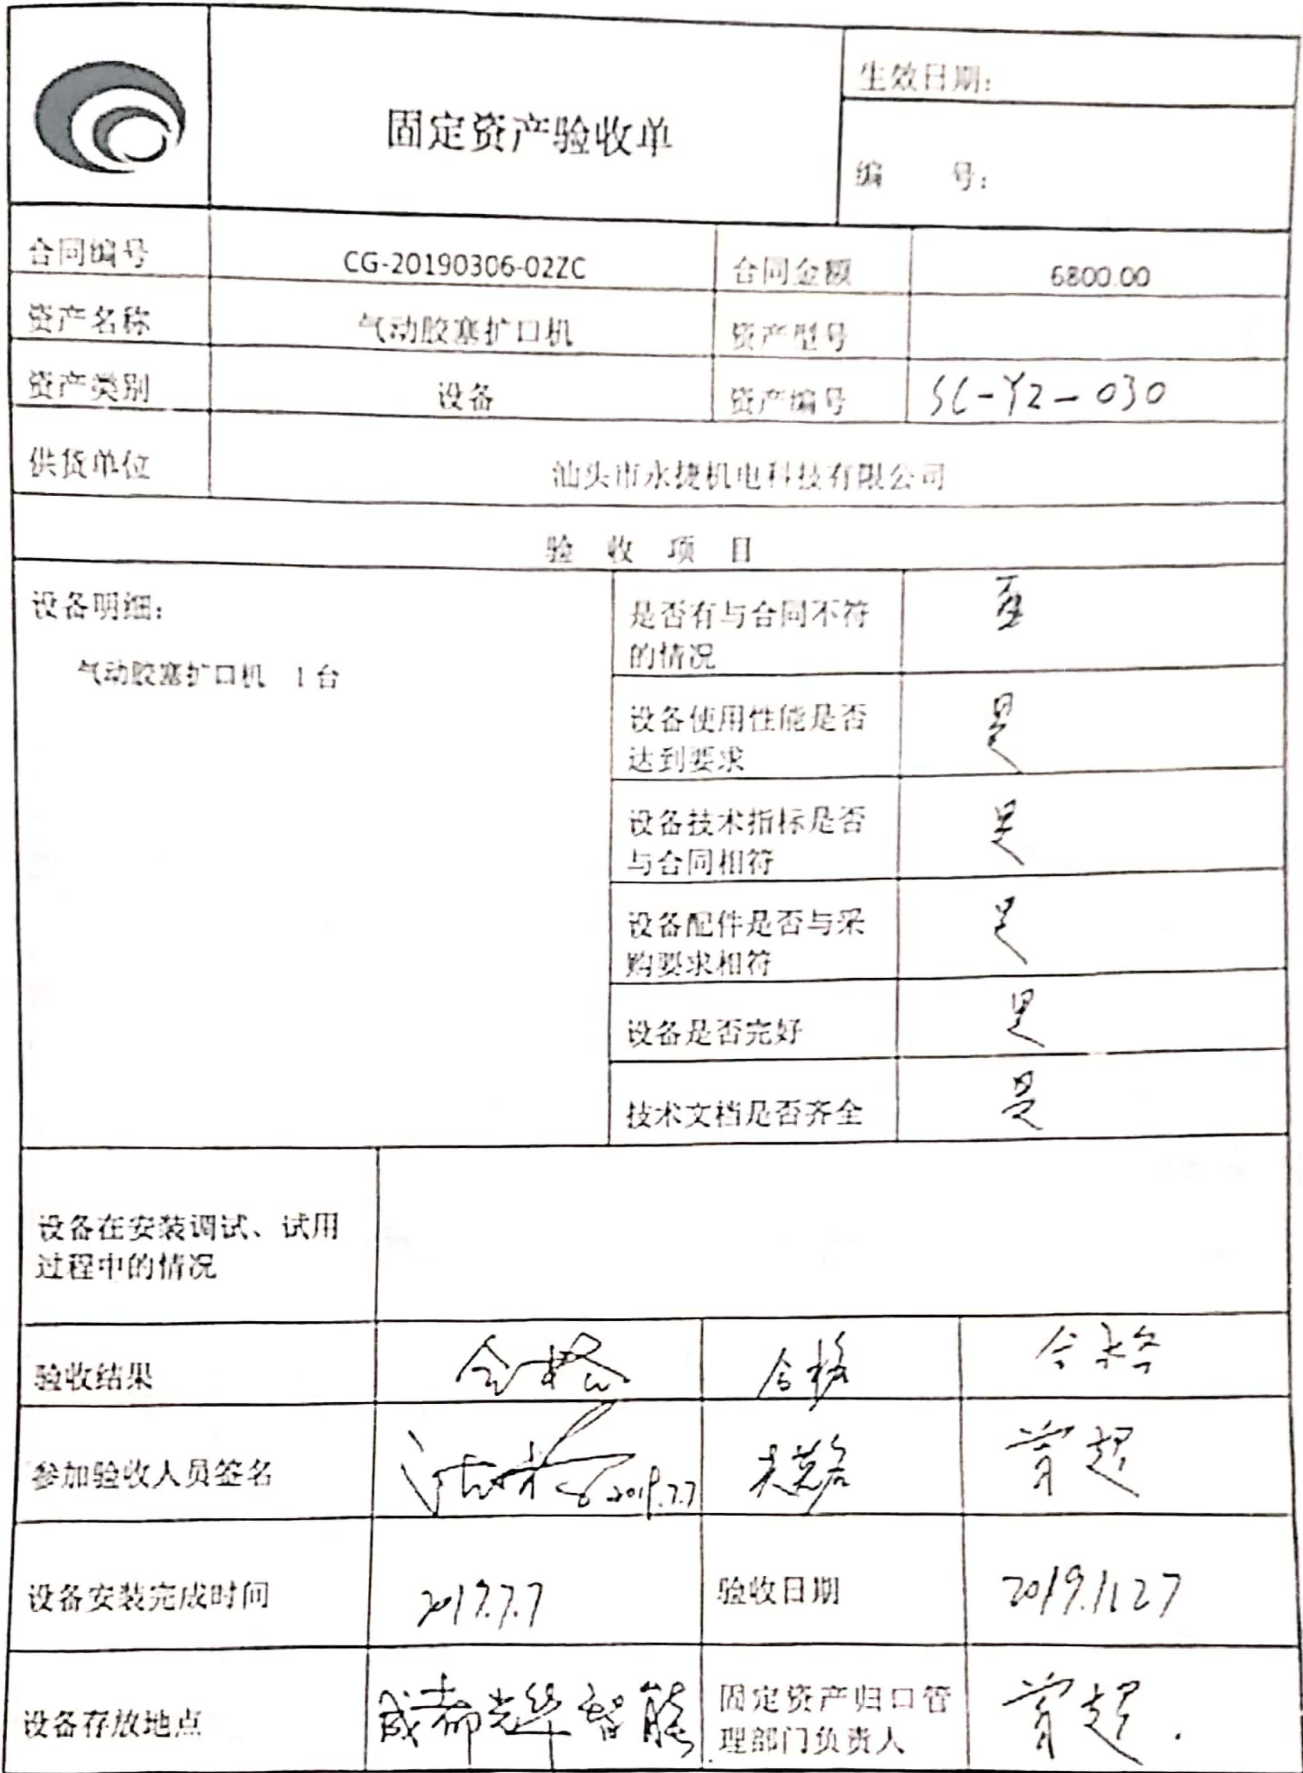 固定资产验收单
生效日期：
编 号：
合同编号
CG-20190306-02ZC
合同金额
6800.00
资产名称
气动胶塞扩口机
资产型号
资产类别
设备
资产编号
SC-YZ-030
供货单位
汕头市永捷机电科技有限公司
验 收 项 目
设备明细：
气动胶塞扩口机 1台
是否有与合同不符
的情况
否
设备使用性能是否
达到要求
是
设备技术指标是否
与合同相符
是
设备配件是否与采
购要求相符
是
设备是否完好
是
技术文档是否齐全
是
设备在安装调试、试用
过程中的情况
验收结果
合格
合格
合格
参加验收人员签名
2019.7.7
设备安装完成时间
2019.7.7
验收日期
2019.11.27
设备存放地点
成都光华智能
固定资产归口管
理部门负责人